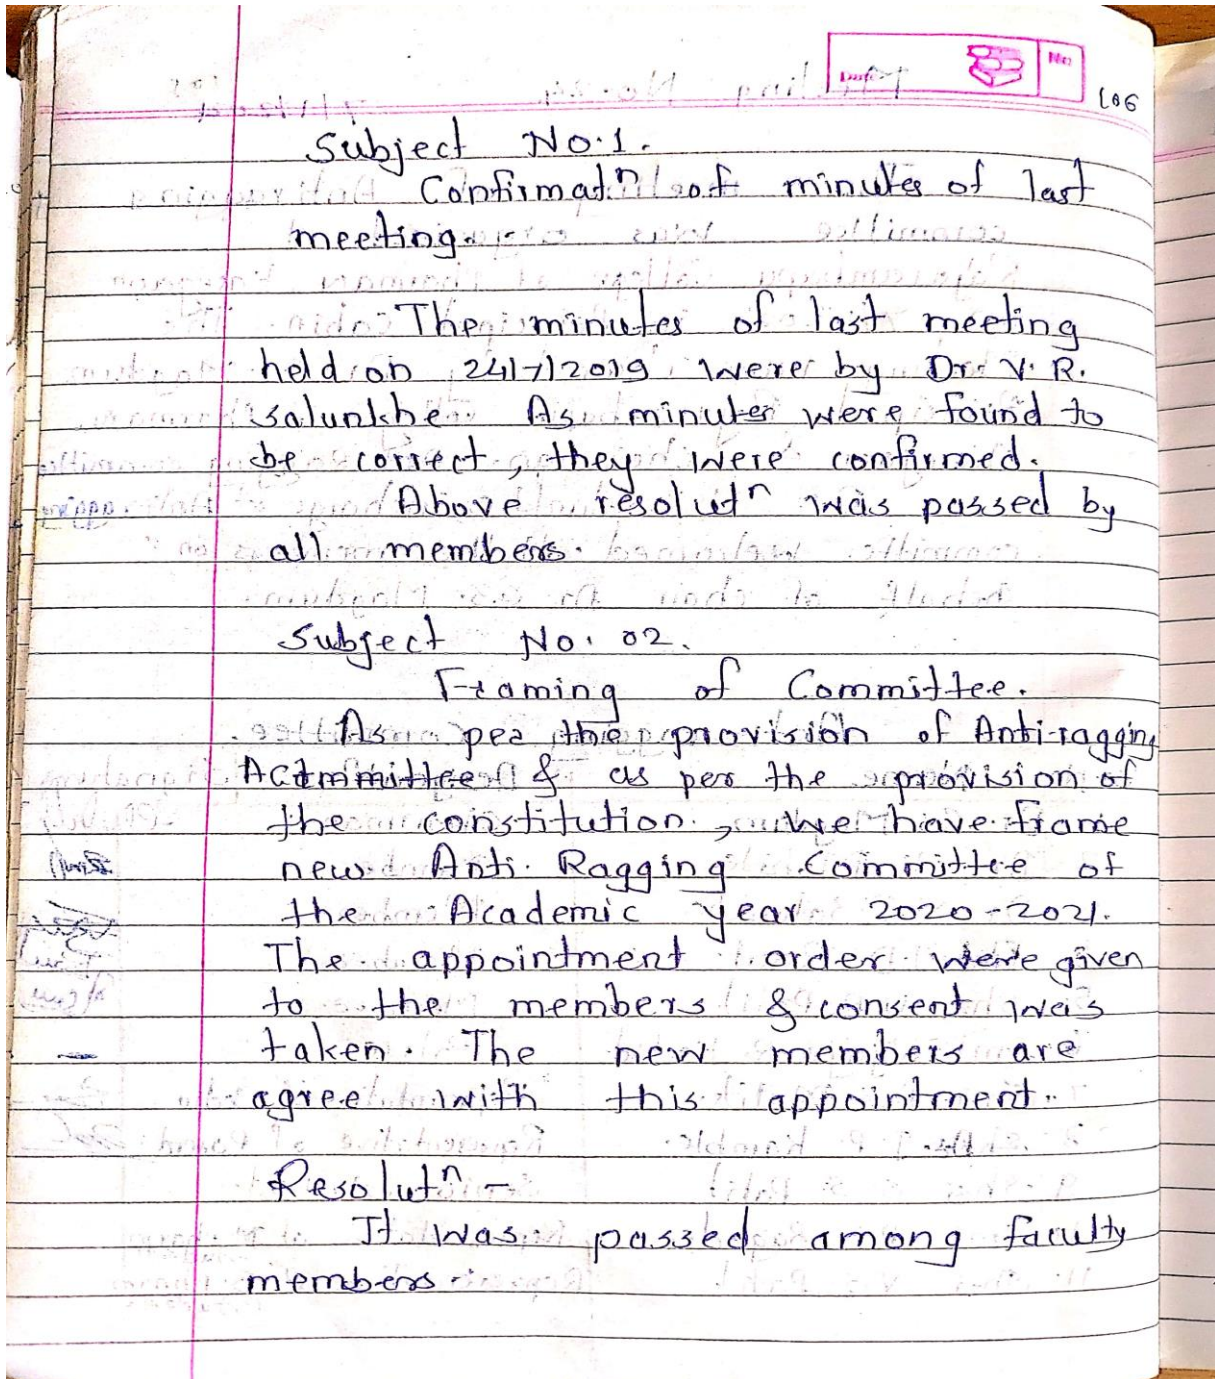 Date
No
106
Subject No.1.
Confirmatⁿ of minutes of last
meeting.
The minutes of last meeting
held on 24/7/2019 were by Dr V. R.
Salunkhe. As minutes were found to
be correct, they were confirmed.
Above resolutⁿ was passed by
all members.
Subject No. 02.
Framing of Committee.
As per the provision of Anti-ragging
Act & as per the provision of
the constitution, we have frame
new Anti. Ragging Committee of
the Academic year 2020-2021.
The appointment order were given
to the members & consent was
taken. The new members are
agree with this appointment.
Resolutⁿ -
It was passed among faculty
members.